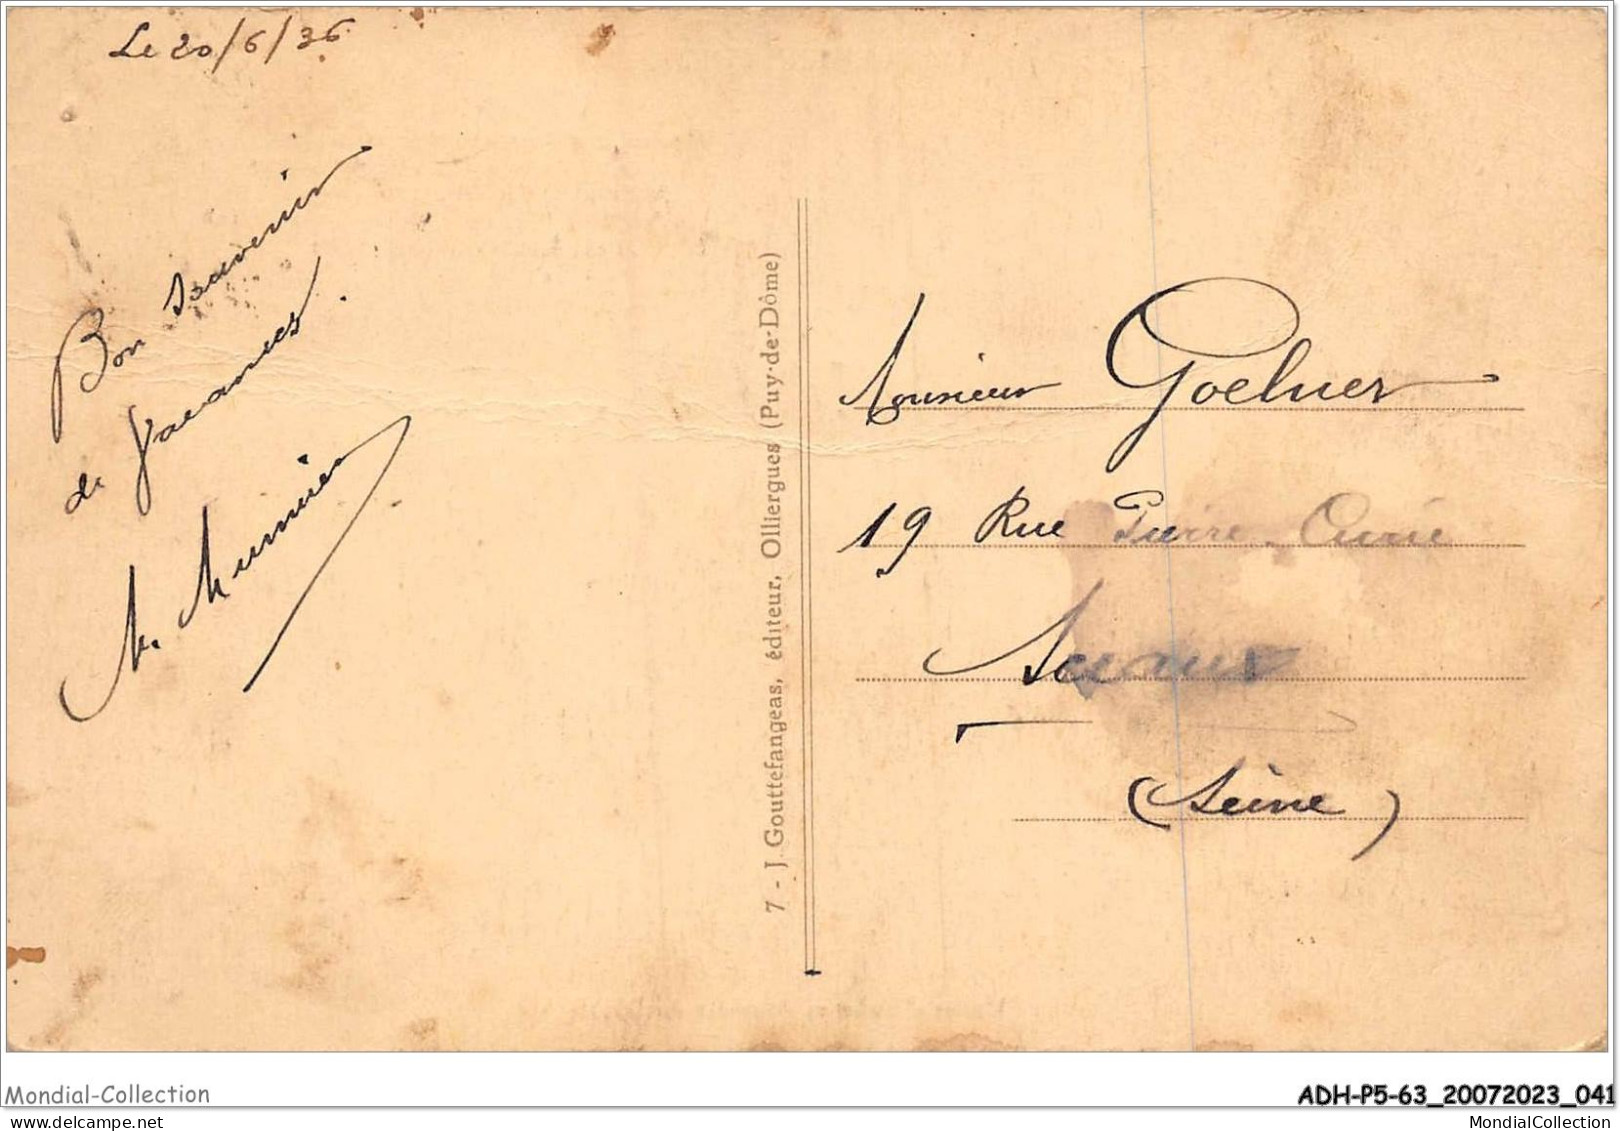 Le 20/6/36
Bon Souvenir
de Vacances.
M. Meunier
7 - J. Gouttefangeas, éditeur, Olliergues (Puy-de-Dôme)
Monsieur Goelner
19 Rue Pierre-Curie
Sceaux
(Seine)
Mondial-Collection
ADH-P5-63_20072023_041
MondialCollection MondialCollection